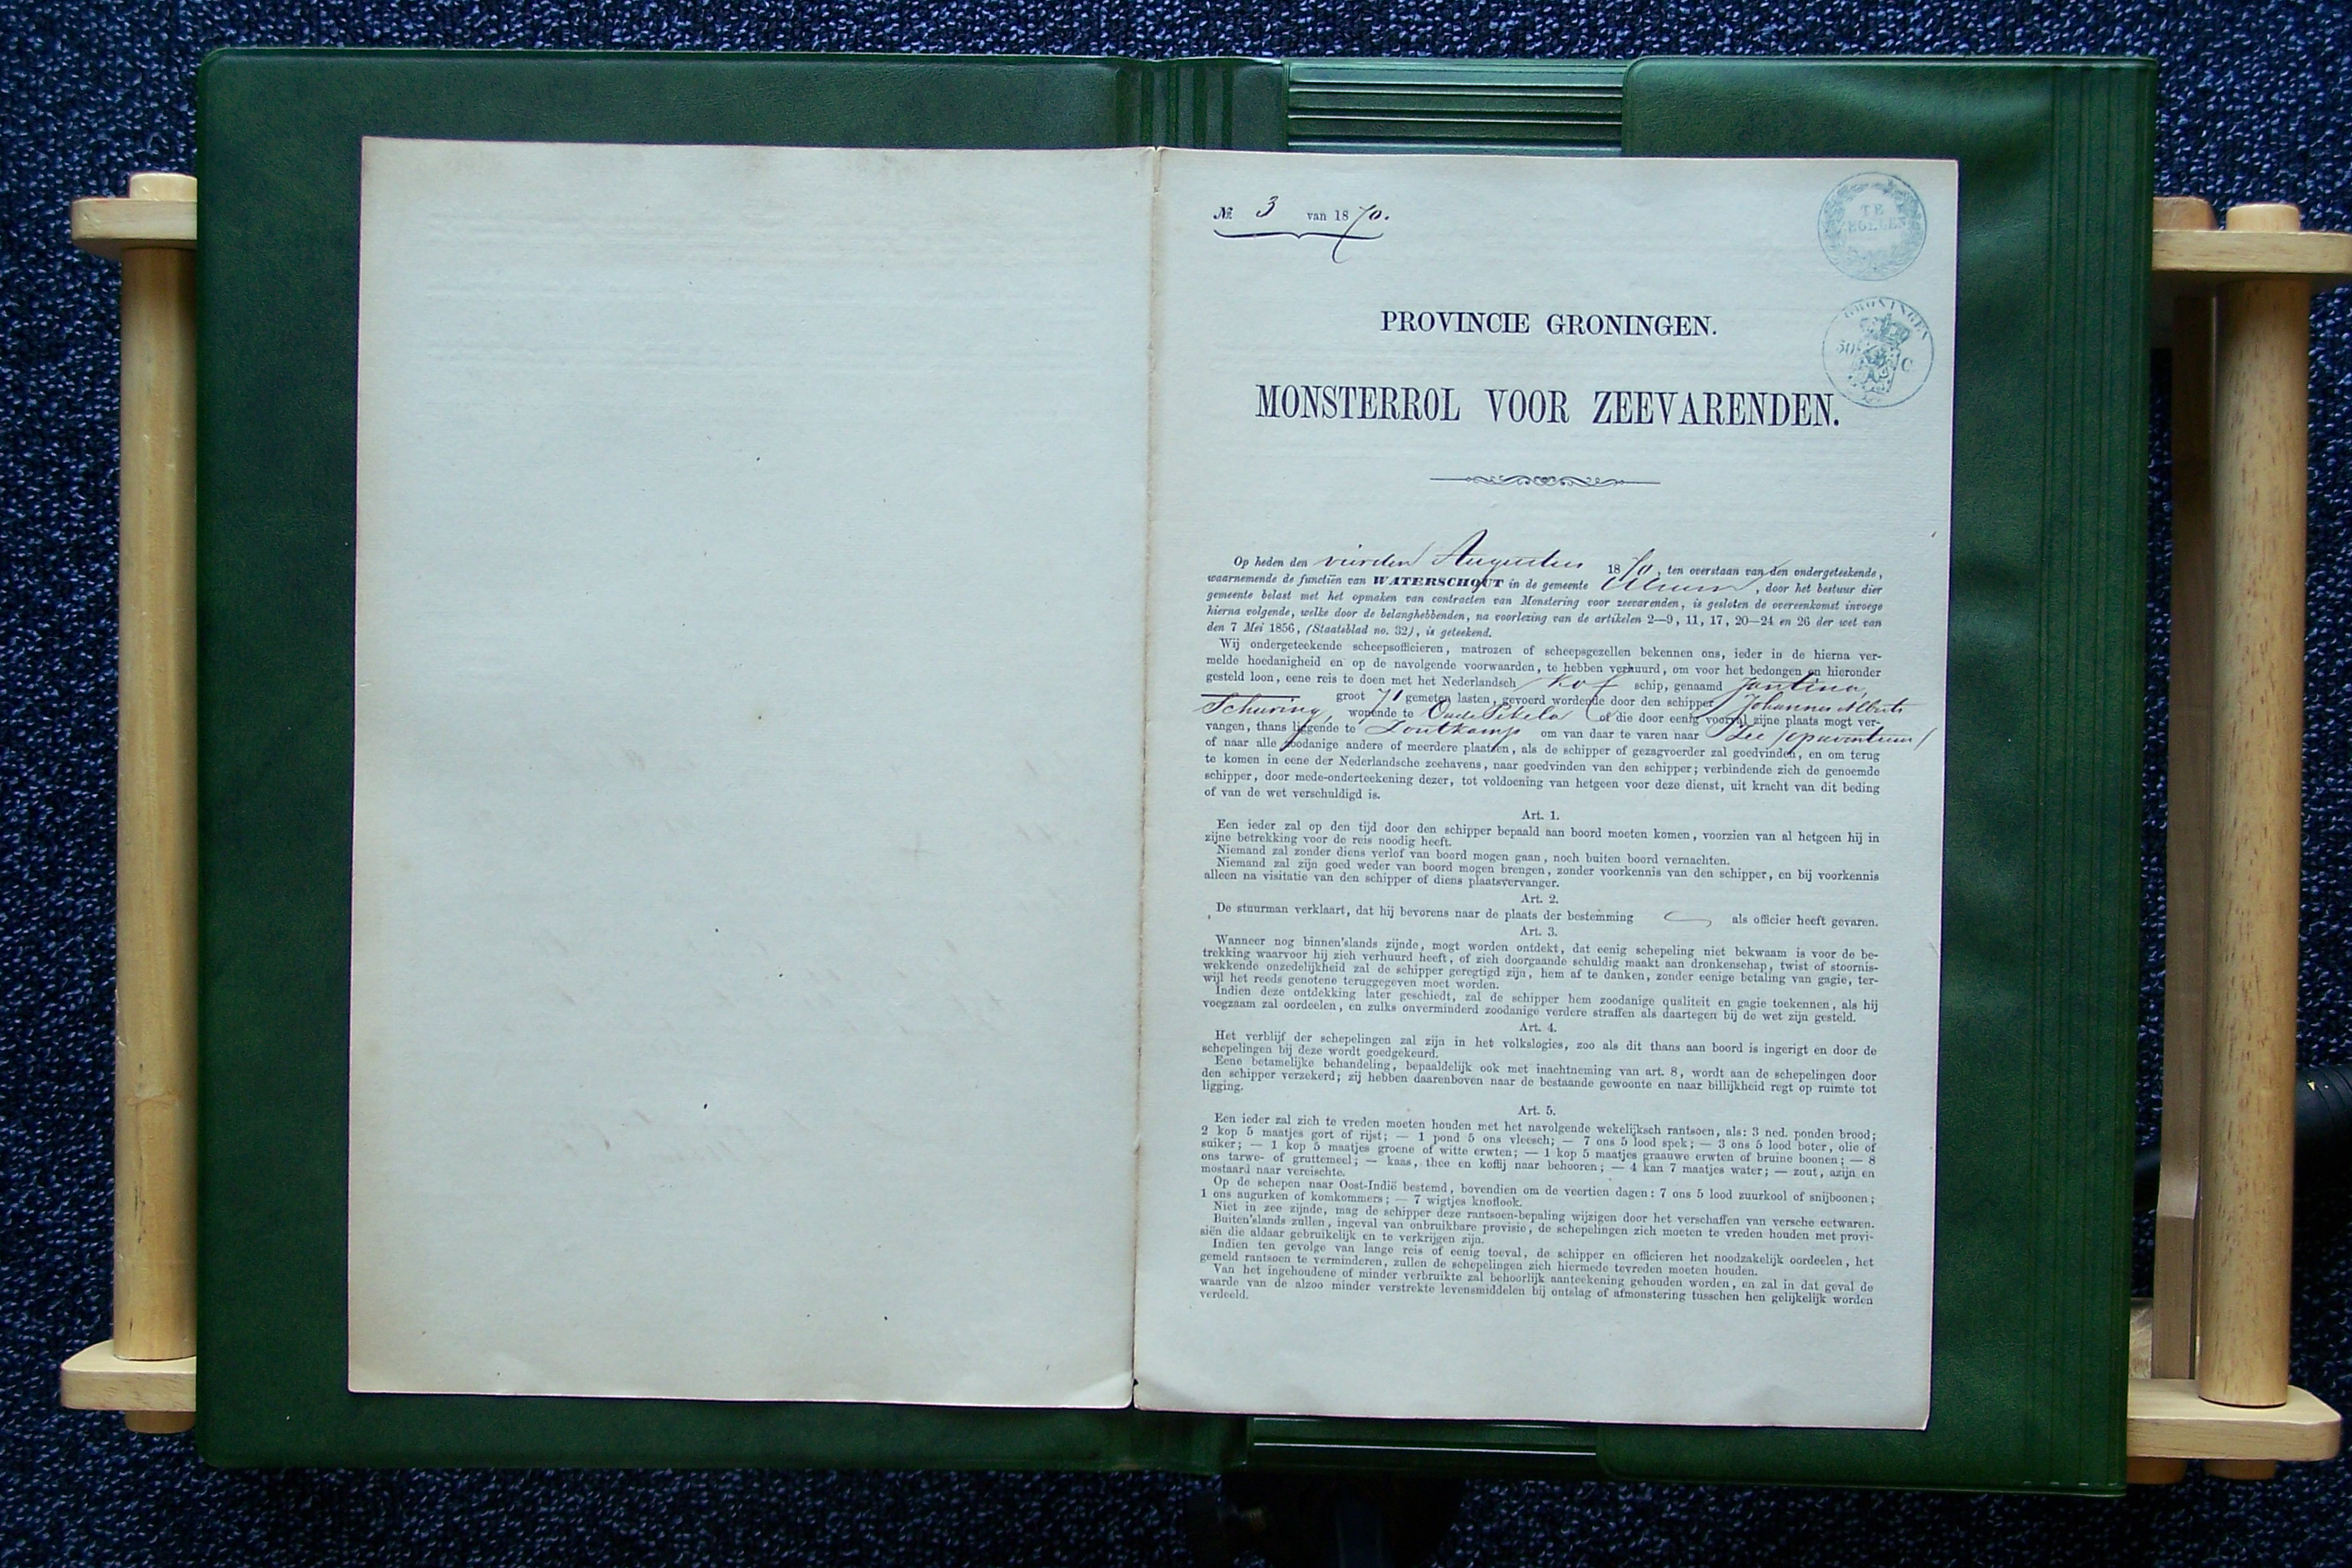 № 3 van 1870.
TE
GRONINGEN
50 C
PROVINCIE GRONINGEN.
MONSTERROL VOOR ZEEVARENDEN.
Op heden den vierden Augustus 1870, ten overstaan van den ondergeteekende,
waarnemende de functiën van WATERSCHOUT in de gemeente Ulrum, door het bestuur dier
gemeente belast met het opmaken van contracten van Monstering voor zeevarenden, is gesloten de overeenkomst invoege
hierna volgende, welke door de belanghebbenden, na voorlezing van de artikelen 2—9, 11, 17, 20—24 en 26 der wet van
den 7 Mei 1856, (Staatsblad no. 32), is geteekend.
Wij ondergeteekende scheepsofficieren, matrozen of scheepsgezellen bekennen ons, ieder in de hierna ver-
melde hoedanigheid en op de navolgende voorwaarden, te hebben verhuurd, om voor het bedongen en hieronder
gesteld loon, eene reis te doen met het Nederlandsch Kof schip, genaamd Jantina,
groot 71 gemeten lasten, gevoerd wordende door den schipper Johannes Alberts
Schuring, wonende te Oude Pekela of die door eenig voorval zijne plaats mogt ver-
vangen, thans liggende te Zoutkamp om van daar te varen naar Zee /opaventuur/
of naar alle zoodanige andere of meerdere plaatsen, als de schipper of gezagvoerder zal goedvinden, en om terug
te komen in eene der Nederlandsche zeehavens, naar goedvinden van den schipper; verbindende zich de genoemde
schipper, door mede-onderteekening dezer, tot voldoening van hetgeen voor deze dienst, uit kracht van dit beding
of van de wet verschuldigd is.
Art. 1.
Een ieder zal op den tijd door den schipper bepaald aan boord moeten komen, voorzien van al hetgeen hij in
zijne betrekking voor de reis noodig heeft.
Niemand zal zonder diens verlof van boord mogen gaan, noch buiten boord vernachten.
Niemand zal zijn goed weder van boord mogen brengen, zonder voorkennis van den schipper, en bij voorkennis
alleen na visitatie van den schipper of diens plaatsvervanger.
Art. 2.
De stuurman verklaart, dat hij bevorens naar de plaats der bestemming als officier heeft gevaren.
Art. 3.
Wanneer nog binnen'slands zijnde, mogt worden ontdekt, dat eenig schepeling niet bekwaam is voor de be-
trekking waarvoor hij zich verhuurd heeft, of zich doorgaande schuldig maakt aan dronkenschap, twist of stoornis-
wekkende onzedelijkheid zal de schipper geregtigd zijn, hem af te danken, zonder eenige betaling van gagie, ter-
wijl het reeds genotene teruggegeven moet worden.
Indien deze ontdekking later geschiedt, zal de schipper hem zoodanige qualiteit en gagie toekennen, als hij
voegzaam zal oordeelen, en zulks onverminderd zoodanige verdere straffen als daartegen bij de wet zijn gesteld.
Art. 4.
Het verblijf der schepelingen zal zijn in het volkslogies, zoo als dit thans aan boord is ingerigt en door de
schepelingen bij deze wordt goedgekeurd.
Eene betamelijke behandeling, bepaaldelijk ook met inachtneming van art. 8, wordt aan de schepelingen door
den schipper verzekerd; zij hebben daarenboven naar de bestaande gewoonte en naar billijkheid regt op ruimte tot
ligging.
Art. 5.
Een ieder zal zich te vreden moeten houden met het navolgende wekelijksch rantsoen, als: 3 ned. ponden brood;
2 kop 5 maatjes gort of rijst; — 1 pond 5 ons vleesch; — 7 ons 5 lood spek; — 3 ons 5 lood boter, olie of
suiker; — 1 kop 5 maatjes groene of witte erwten; — 1 kop 5 maatjes graauwe erwten of bruine boonen; — 8
ons tarwe- of gruttemeel; — kaas, thee en koffij naar behooren; — 4 kan 7 maatjes water; — zout, azijn en
mostaard naar vereischte.
Op de schepen naar Oost-Indië bestemd, bovendien om de veertien dagen: 7 ons 5 lood zuurkool of snijboonen;
1 ons augurken of komkommers; — 7 wigtjes knoflook.
Niet in zee zijnde, mag de schipper deze rantsoen-bepaling wijzigen door het verschaffen van versche eetwaren.
Buiten'slands zullen, ingeval van onbruikbare provisie, de schepelingen zich moeten te vreden houden met provi-
siën die aldaar gebruikelijk en te verkrijgen zijn.
Indien ten gevolge van lange reis of eenig toeval, de schipper en officieren het noodzakelijk oordeelen, het
gemeld rantsoen te verminderen, zullen de schepelingen zich hiermede tevreden moeten houden.
Van het ingehoudene of minder verbruikte zal behoorlijk aanteekening gehouden worden, en zal in dat geval de
waarde van de alzoo minder verstrekte levensmiddelen bij ontslag of afmonstering tusschen hen gelijkelijk worden
verdeeld.